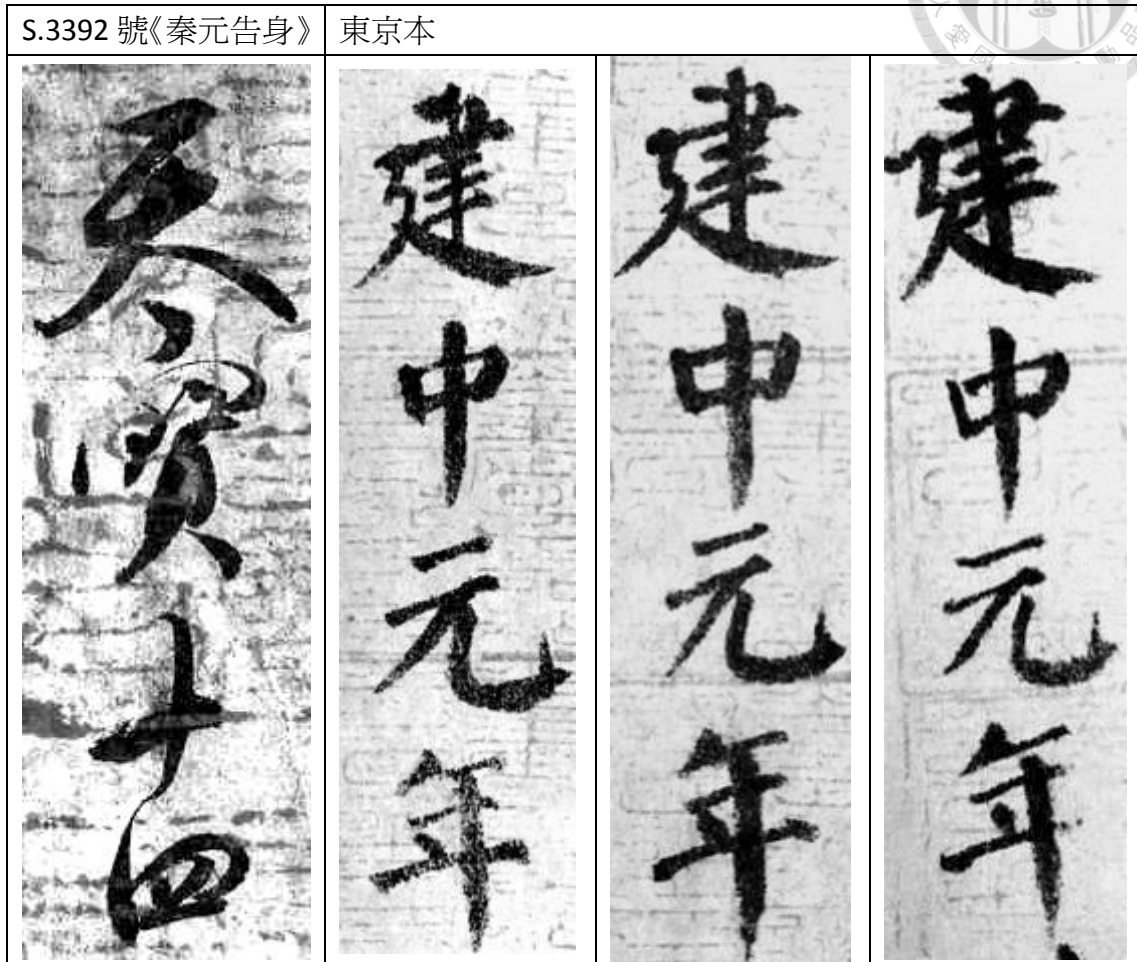 S.3392 號《秦元告身》
東京本
天寶十四
建中元年
建中元年
建中元年